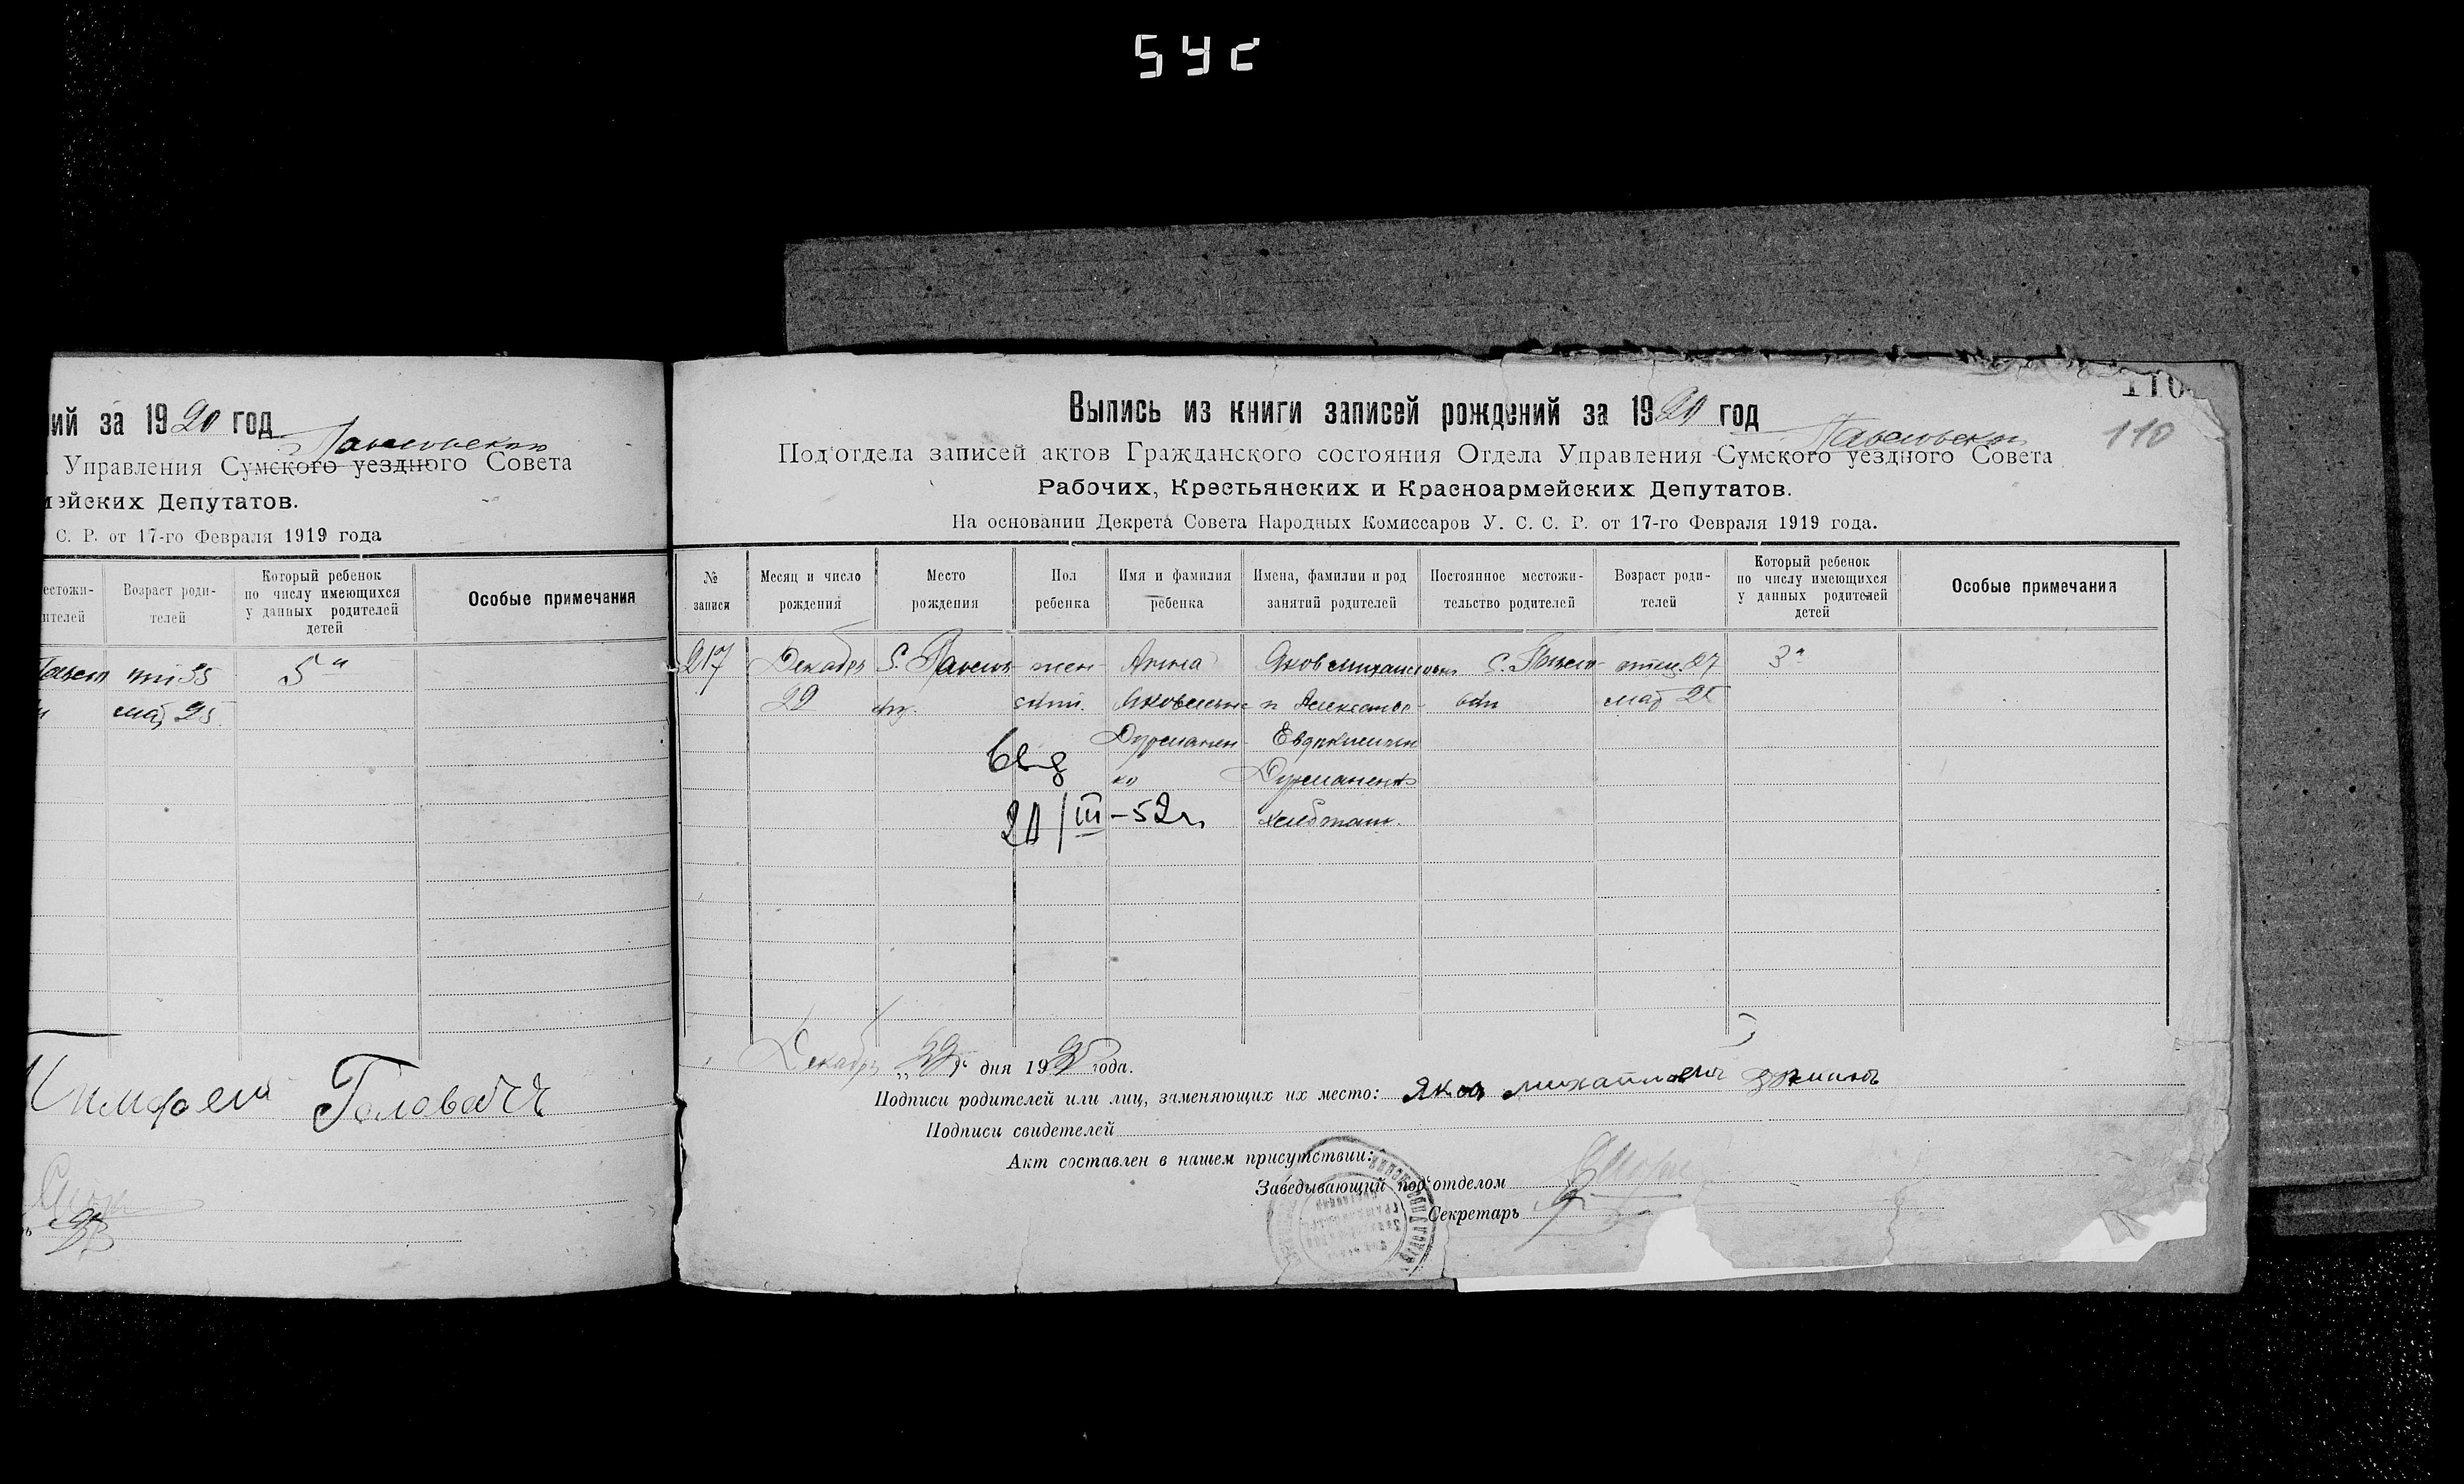 5 y c
ий за 1920 год
Павловской
Управления Сумского уездного Совета
мэйских Депутатов.
С. Р. от 17-го Февраля 1919 года
естожи- Возраст роди- Который ребенок Особые примечания
ителей телей по числу имеющихся
у данных родителей
детей
35 5й
мат 25
Тимофей Головач
110
110
Выпись из книги записей рождений за 1920 год
Павловской
Под'отдела записей актов Гражданского состояния Отдела Управления Сумского уездного Совета
Рабочих, Крестьянских и Красноармейских Депутатов.
На основании Декрета Совета Народных Комиссаров У. С. С. Р. от 17-го Февраля 1919 года.
№ Месяц и число Место Пол Имя и фамилия Имена, фамилии и род Постоянное местожи- Возраст роди- Который ребенок Особые примечания
записи рождения рождения ребенка ребенка занятий родителей тельство родителей телей по числу имеющихся
у данных родителей
детей
217 Декабр С. Павлов- жен- Анна Яков Михайлович С. Павло- отец 27 3й
22 ки. ский. Яковлевна и Александра вки мат 25
Дурманен- Евдокимовна
ко Дурманенко
хлебопаш.
20/III-52г.
Декабр 22 дня 1920 года.
Подписи родителей или лиц, заменяющих их место: Яков Михайлович
Подписи свидетелей
Акт составлен в нашем присутствии:
Заведывающий под'отделом
Секретарь